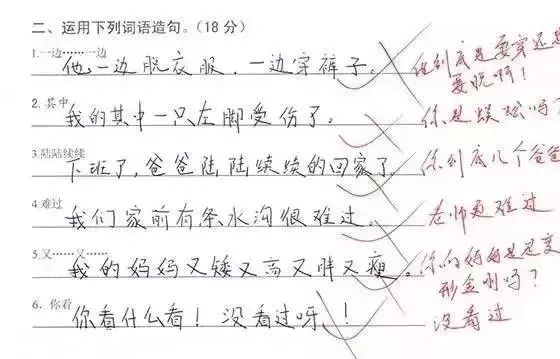 二、运用下列词语造句。（18分）
1.一边……一边
他一边脱衣服，一边穿裤子。
他到底是要穿还是
要脱啊！
2. 其中
我的其中一只左脚受伤了。
你是蜈蚣吗？
3.陆陆续续
下班了，爸爸陆陆续续的回家了。
你到底几个爸爸
4.难过
我们家前有条水沟很难过。
老师更难过
5.又……又……
我的妈妈又矮又高又胖又瘦。
你的妈妈是是变
形金刚吗？
6. 你看
你看什么看！没看过呀！！
没看过